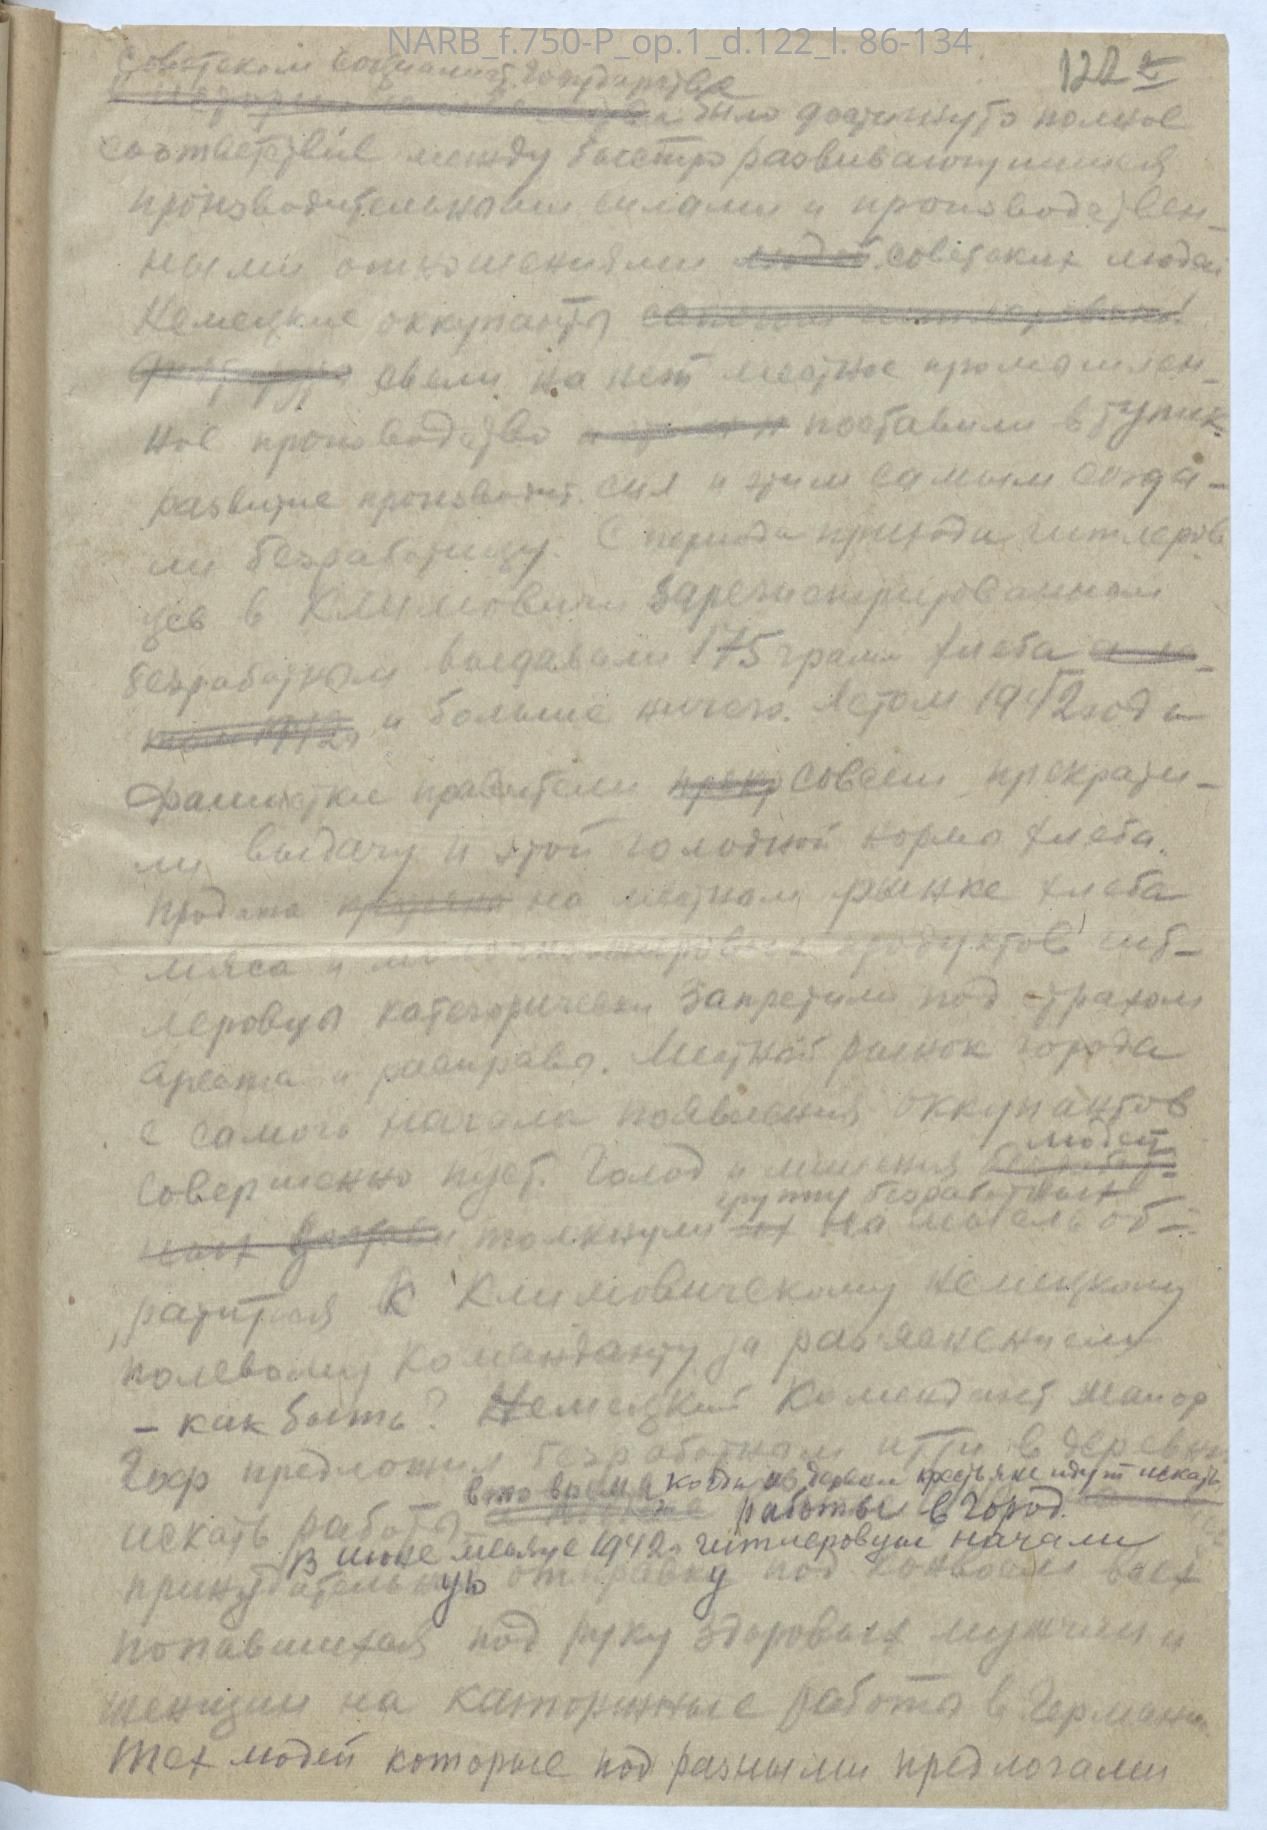 NARB_f.750-P_op.1_d.122_l. 86-134
122
Советском социалист. государстве
было достигнуто полное
соответствие между быстро развивающимися
производительными силами и производствен-
ными отношениями людей советских людей
Немецкие оккупанты
свели на нет местное промышлен-
ное производство поставили в тупик
развитие производит. сил и этим самым созда-
ли безработицу. С периода прихода гитлеров
цев в Климовичи зарегистрированным
безработным выдавали 175 грамм хлеба
и больше ничего. Летом 1942 года
Фашистские правители совсем прекрати-
ли выдачу и этой голодной нормы хлеба.
Продажа на местном рынке хлеба
мяса и молочно-жировых продуктов гит-
леровцы категорически запретили под страхом
ареста и расправы. Местный рынок города
с самого начала появления оккупантов
людей
совершенно пуст. Голод и лишения
группу безработных
толкнули их на мысль об-
ратиться к Климовическому немецкому
полевому коменданту за раз'яснением
- как быть? Немецкий комендант майор
предложил безработным итти в деревню
в то время когда из деревни крестьяне идут искать
искать работы работы в город.
В июне месяце 1942 г гитлеровцы начали
принудительную отправку под конвоем всех
попавшихся под руку здоровых мужчин и
женщин на каторжные работы в Германию
Тех людей которые под разными предлогами